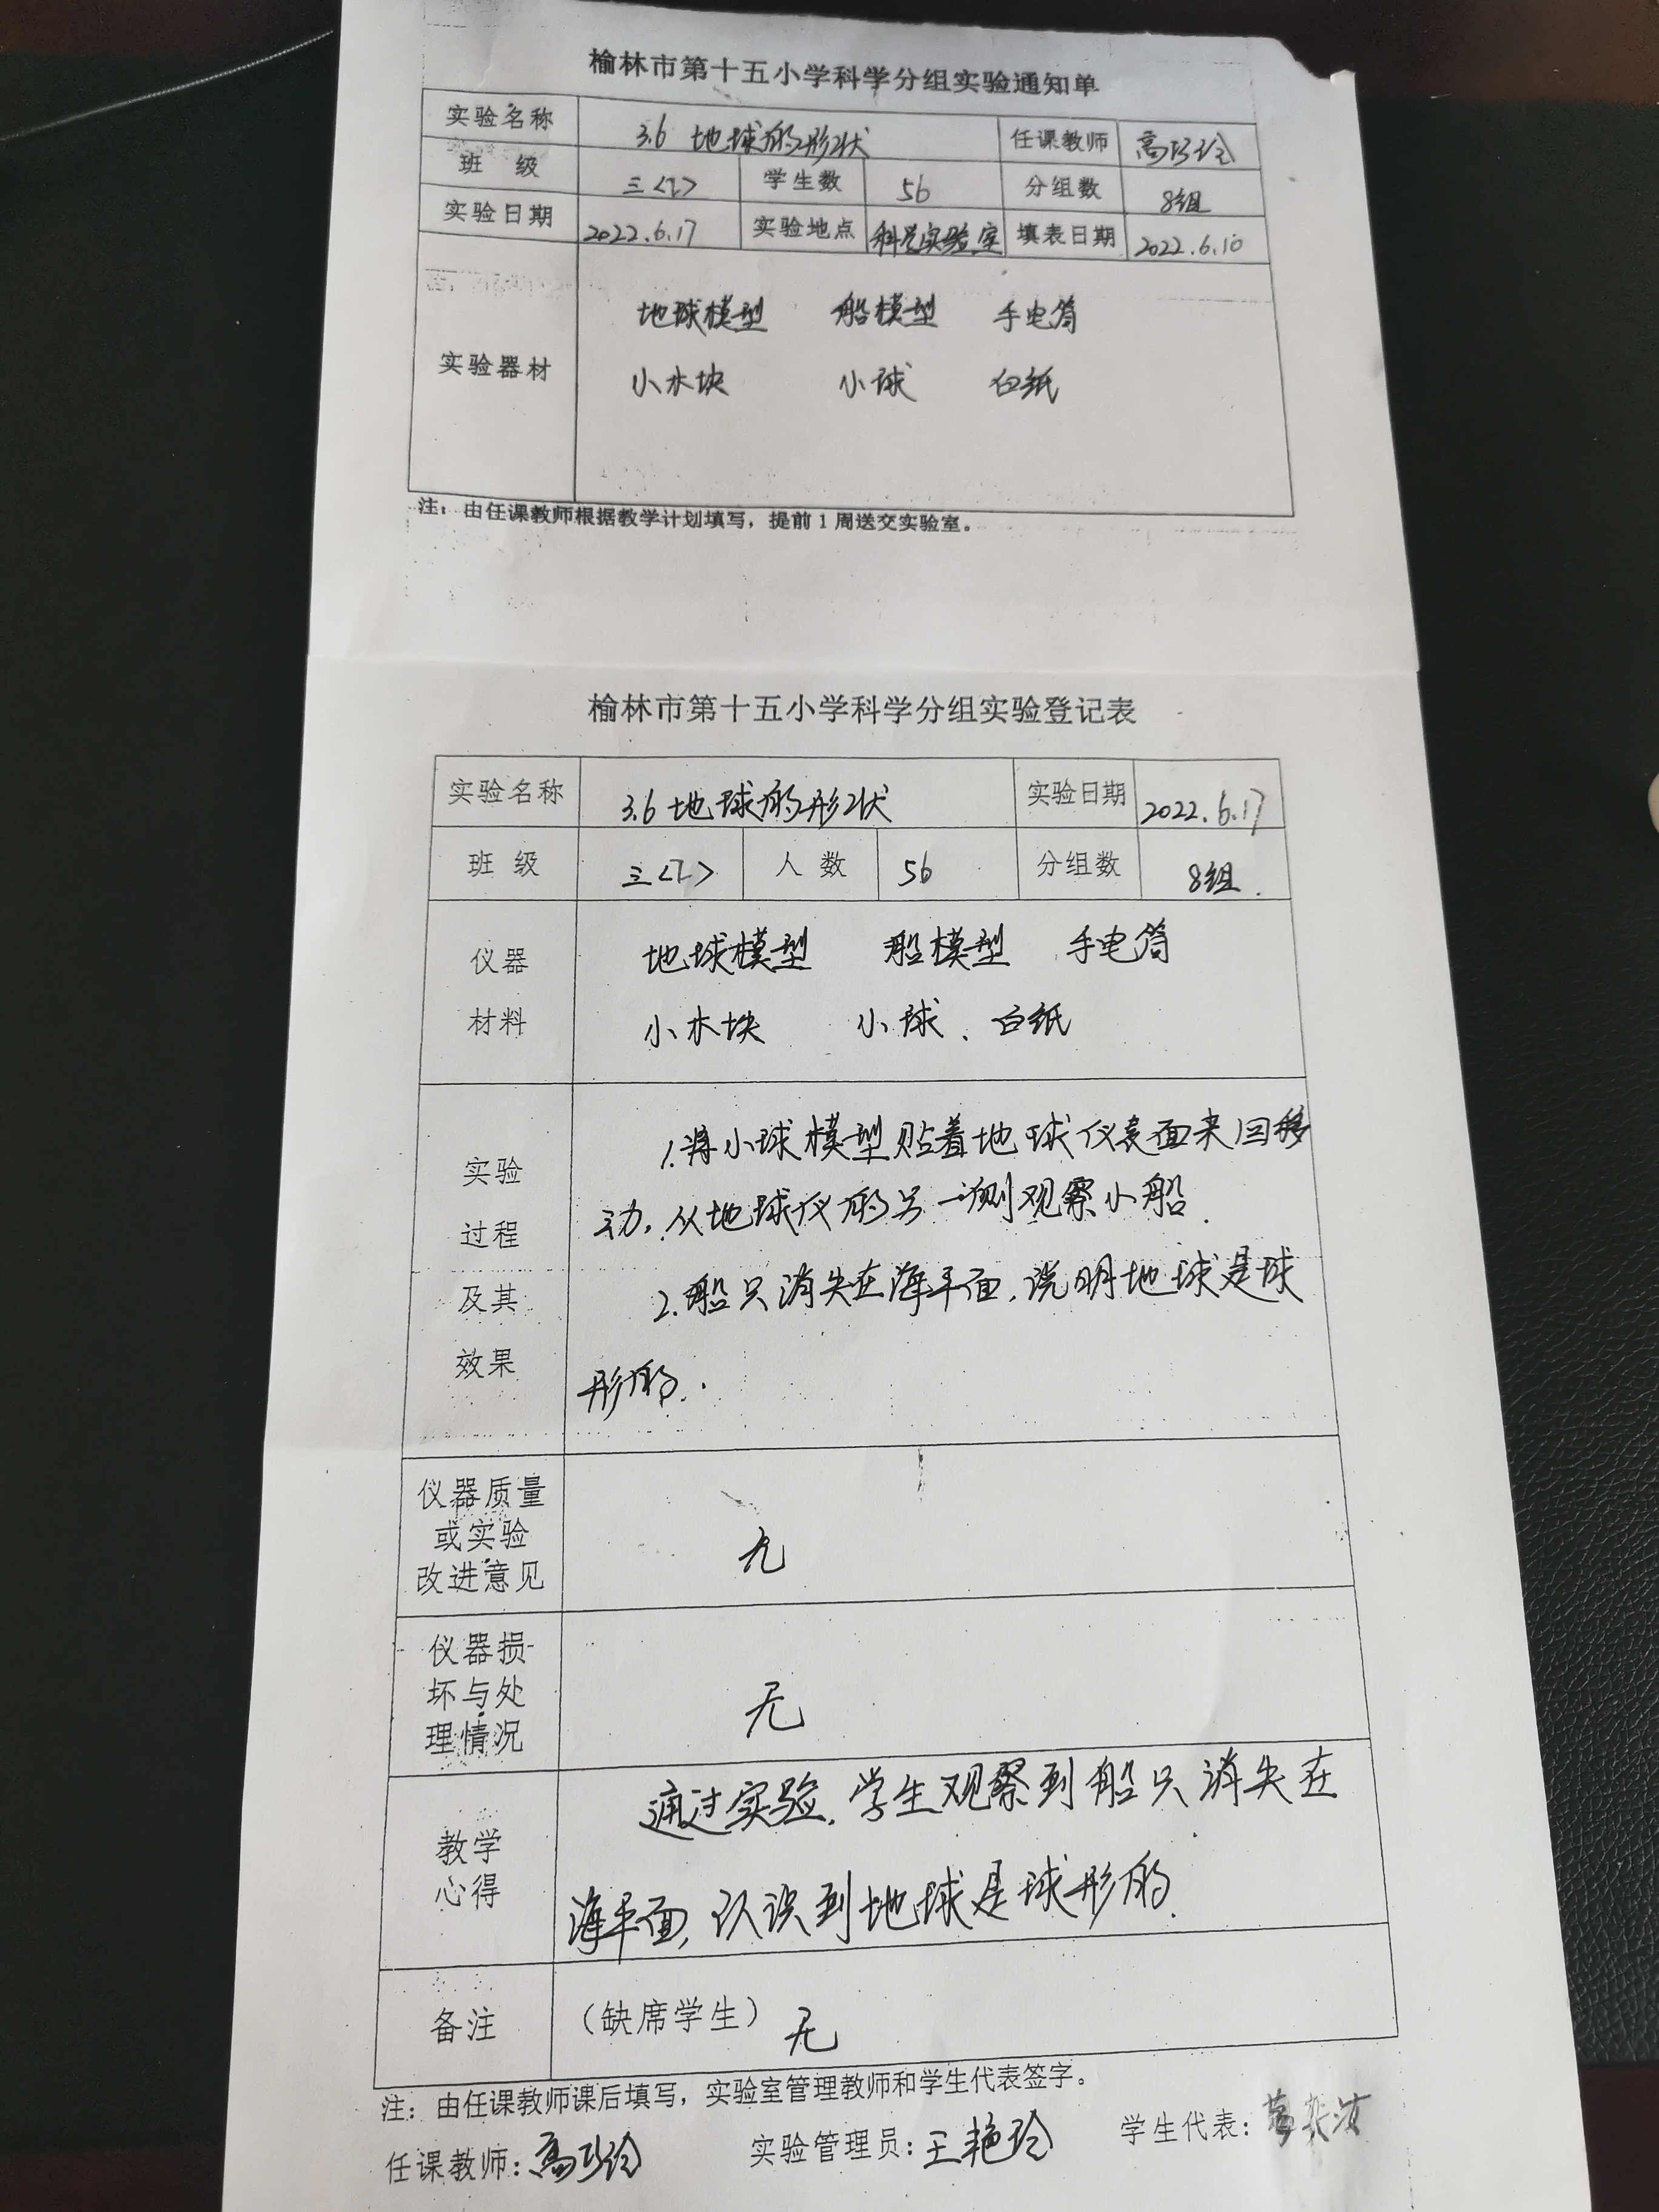 榆林市第十五小学科学分组实验通知单
实验名称 3.6 地球的形状 任课教师 高巧玲
班 级 三<7> 学生数 56 分组数 8组
实验日期 2022.6.17 实验地点 科学实验室 填表日期 2022.6.10
地球模型 船模型 手电筒
实验器材
小木块 小球 白纸
注：由任课教师根据教学计划填写，提前1周送交实验室。
榆林市第十五小学科学分组实验登记表
实验名称 3.6 地球的形状 实验日期 2022.6.17
班 级 三<7> 人 数 56 分组数 8组.
仪器 地球模型 船模型 手电筒
材料 小木块 小球、白纸
实验
过程
及其
效果
1.将小球模型贴着地球仪表面来回移
动,从地球仪的另一测观察小船.
2.船只消失在海平面,说明地球是球
形的.
仪器质量
或实验
改进意见
无
仪器损
坏与处
理情况
无
教学
心得
通过实验,学生观察到船只消失在
海平面,认识到地球是球形的.
备注 （缺席学生） 无
注：由任课教师课后填写，实验室管理教师和学生代表签字。
任课教师：高巧玲 实验管理员：王艳玲 学生代表：